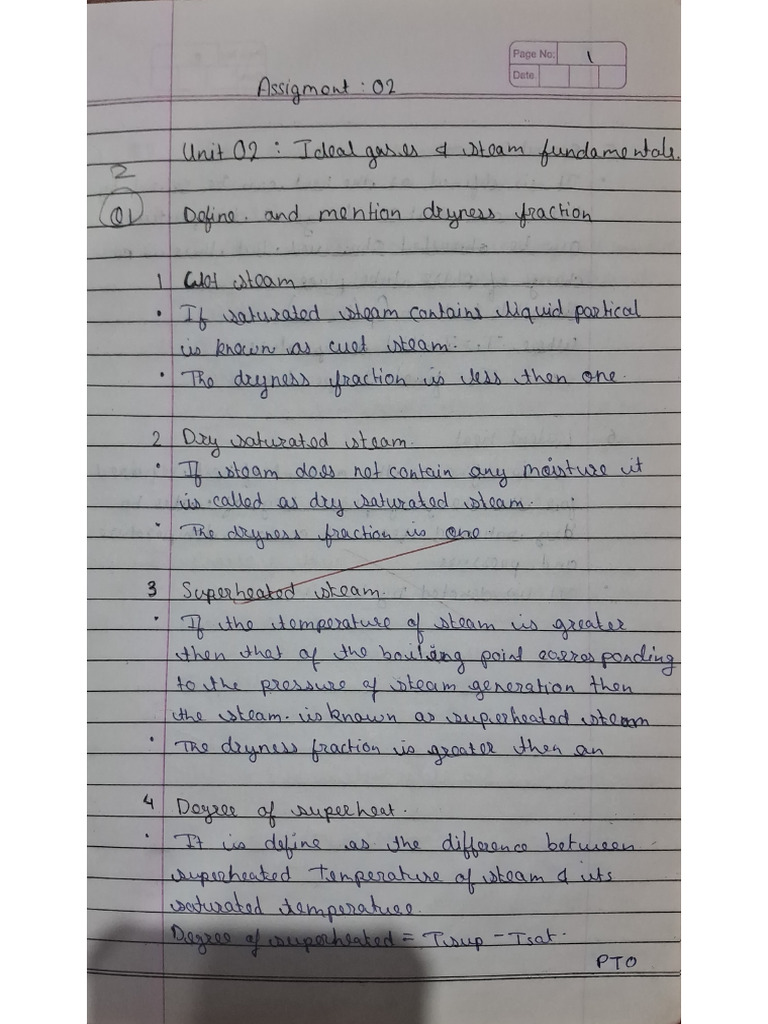 Page No: 1
Date
Assigment : 02
Unit 02 : Ideal gases & steam fundamentals.
2
01 Define and mention dryness fraction
1 Wet steam
• If saturated steam contains liquid partical
is known as wet steam.
• The dryness fraction is less then one
2 Dry saturated steam.
• If steam does not contain any moisture it
is called as dry saturated steam.
• The dryness fraction is one
3 Superheated steam.
• If the temperature of steam is greater
then that of the boiling point corresponding
to the pressure of steam generation then
the steam. is known as superheated steam
• The dryness fraction is greater then an
4 Degree of superheat.
• It is define as the difference between
superheated Temperature of steam & its
saturated temperature.
Degree of superheated = Tsup - Tsat.
PTO